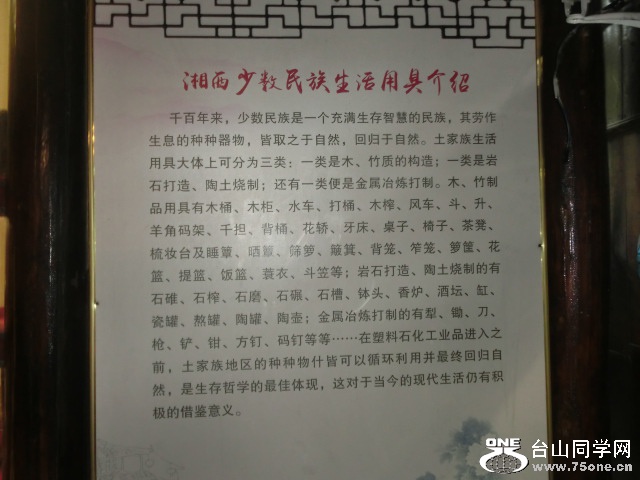 湘西少数民族生活用具介绍
千百年来，少数民族是一个充满生存智慧的民族，其劳作
生息的种种器物，皆取之于自然，回归于自然。土家族生活
用具大体上可分为三类：一类是木、竹质的构造；一类是岩
石打造、陶土烧制；还有一类便是金属冶炼打制。木、竹制
品用具有木桶、木柜、水车、打桶、木榨、风车、斗、升、
羊角码架、千担、背桶、花轿、牙床、桌子、椅子、茶凳、
梳妆台及睡簟、晒簟、筛箩、簸箕、背笼、笮笼、箩筐、花
篮、提篮、饭篮、蓑衣、斗笠等；岩石打造、陶土烧制的有
石碓、石榨、石磨、石碾、石槽、钵头、香炉、酒坛、缸、
瓷罐、熬罐、陶罐、陶壶；金属冶炼打制的有犁、锄、刀、
枪、铲、钳、方钉、码钉等等……在塑料石化工业品进入之
前，土家族地区的种种物什皆可以循环利用并最终回归自
然，是生存哲学的最佳体现，这对于当今的现代生活仍有积
极的借鉴意义。
ONE 台山同学网
www.75one.cn